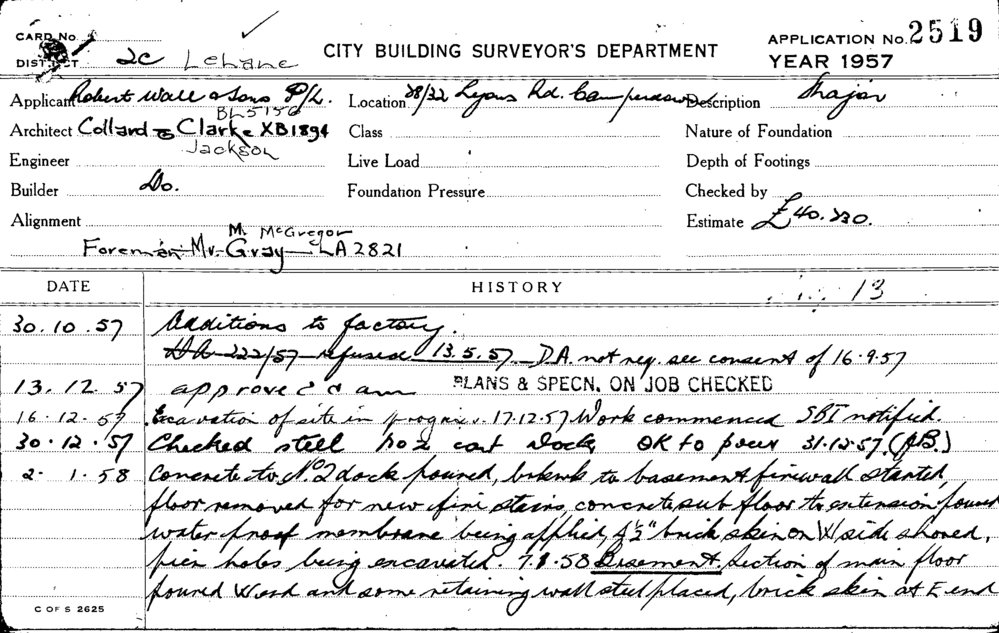 CARD No.
DISTRICT 2C Lehane
CITY BUILDING SURVEYOR'S DEPARTMENT
APPLICATION No. 2519
YEAR 1957
Applicant Robert Wall & Sons P/L. Location 28/32 Lyons Rd. Camperdown Description Major
BL5156
Architect Collard Clarke XB1894 Class Nature of Foundation
Jackson
Engineer Live Load Depth of Footings
Builder Do. Foundation Pressure Checked by
Alignment Estimate £40.230.
M. McGregor
Foreman Mr. Gray LA2821
DATE HISTORY 13
30.10.57 Additions to factory.
DA 222/57 refused 13.5.57 D.A. not req. see consent of 16.9.57
13.12.57 approve PLANS & SPECN. ON JOB CHECKED
16.12.57 Excavation of site in progress. 17.12.57 Work commenced SBI notified.
30.12.57 Checked steel No 2 cart dock OK to pour 31.12.57.
2.1.58 Concrete to No 2 dock poured, brkwk to basement firewall started,
floor removed for new fire stairs, concrete sub floor to extension poured
water proof membrane being applied, 4½" brick skin on W side shored,
pier holes being excavated. 7.1.58 Basement. Section of main floor
poured W end and some retaining wall steel placed, brick skin at E end
C OF S 2625